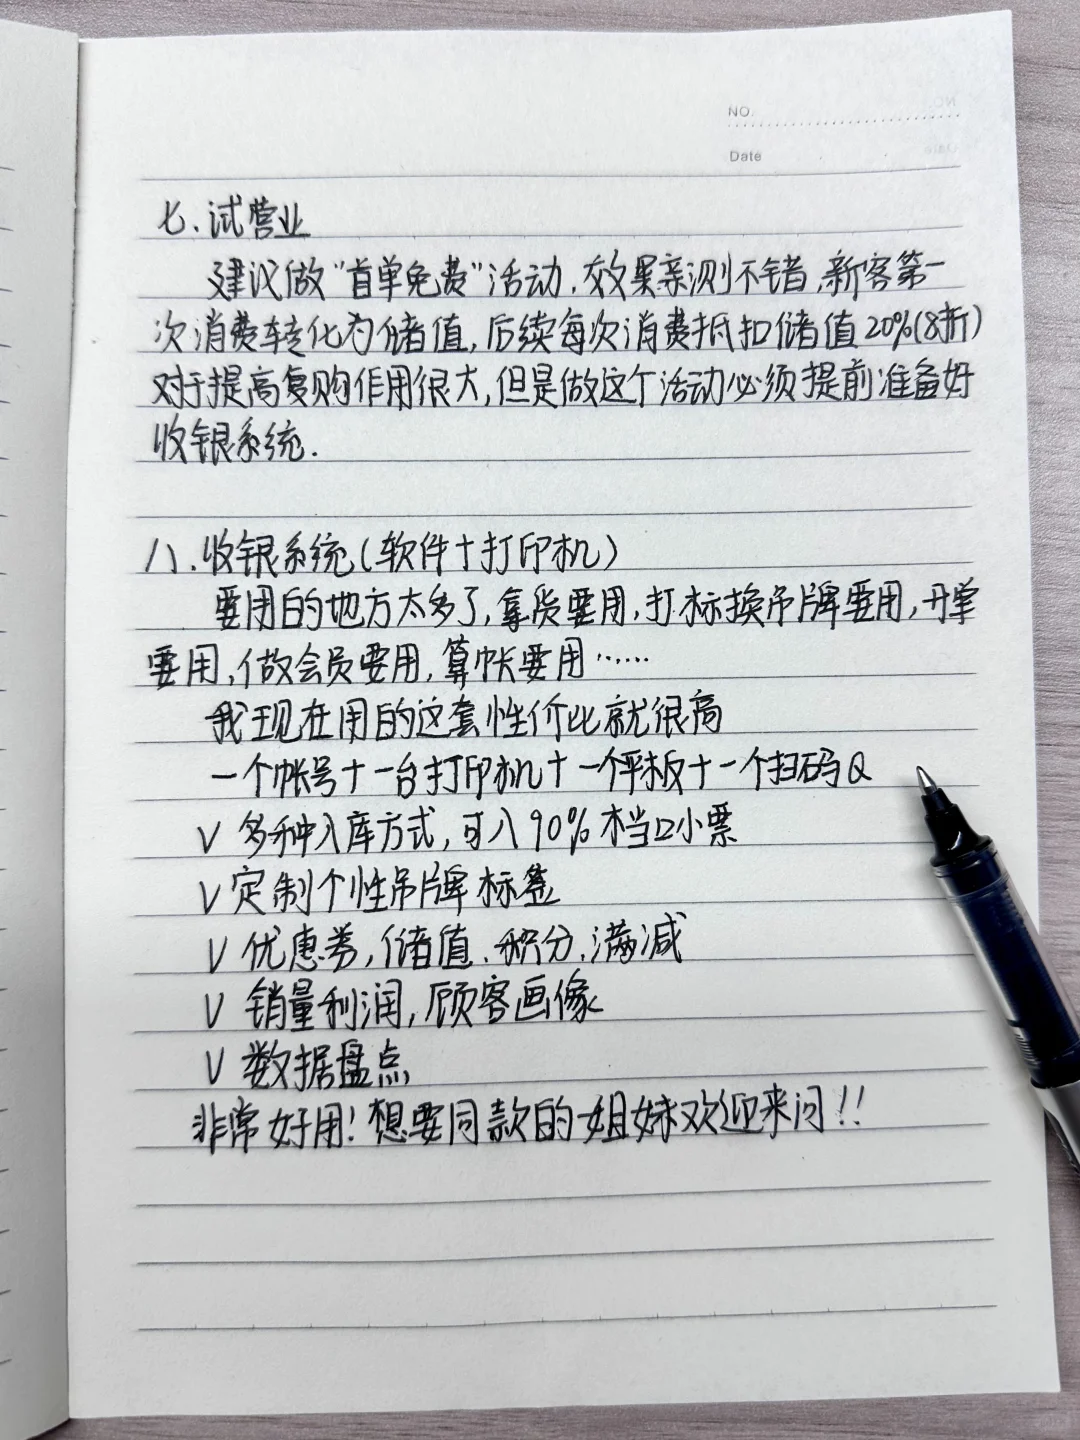 NO.
Date
七.试营业
建议做“首单免费”活动,效果亲测不错,新客第一
次消费转化为储值,后续每次消费抵扣储值20%(8折)
对于提高复购作用很大,但是做这个活动必须提前准备好
收银系统.
八.收银系统(软件+打印机)
要用的地方太多了,拿货要用,打标换吊牌要用,开单
要用,做会员要用,算帐要用……
我现在用的这套性价比就很高
一个帐号+一台打印机+一个平板+一个扫码Q
V 多种入库方式,可入90%档口小票
V 定制个性吊牌标签
V 优惠券,储值、积分,满减
V 销量利润,顾客画像
V 数据盘点
非常好用!想要同款的姐妹欢迎来问!!